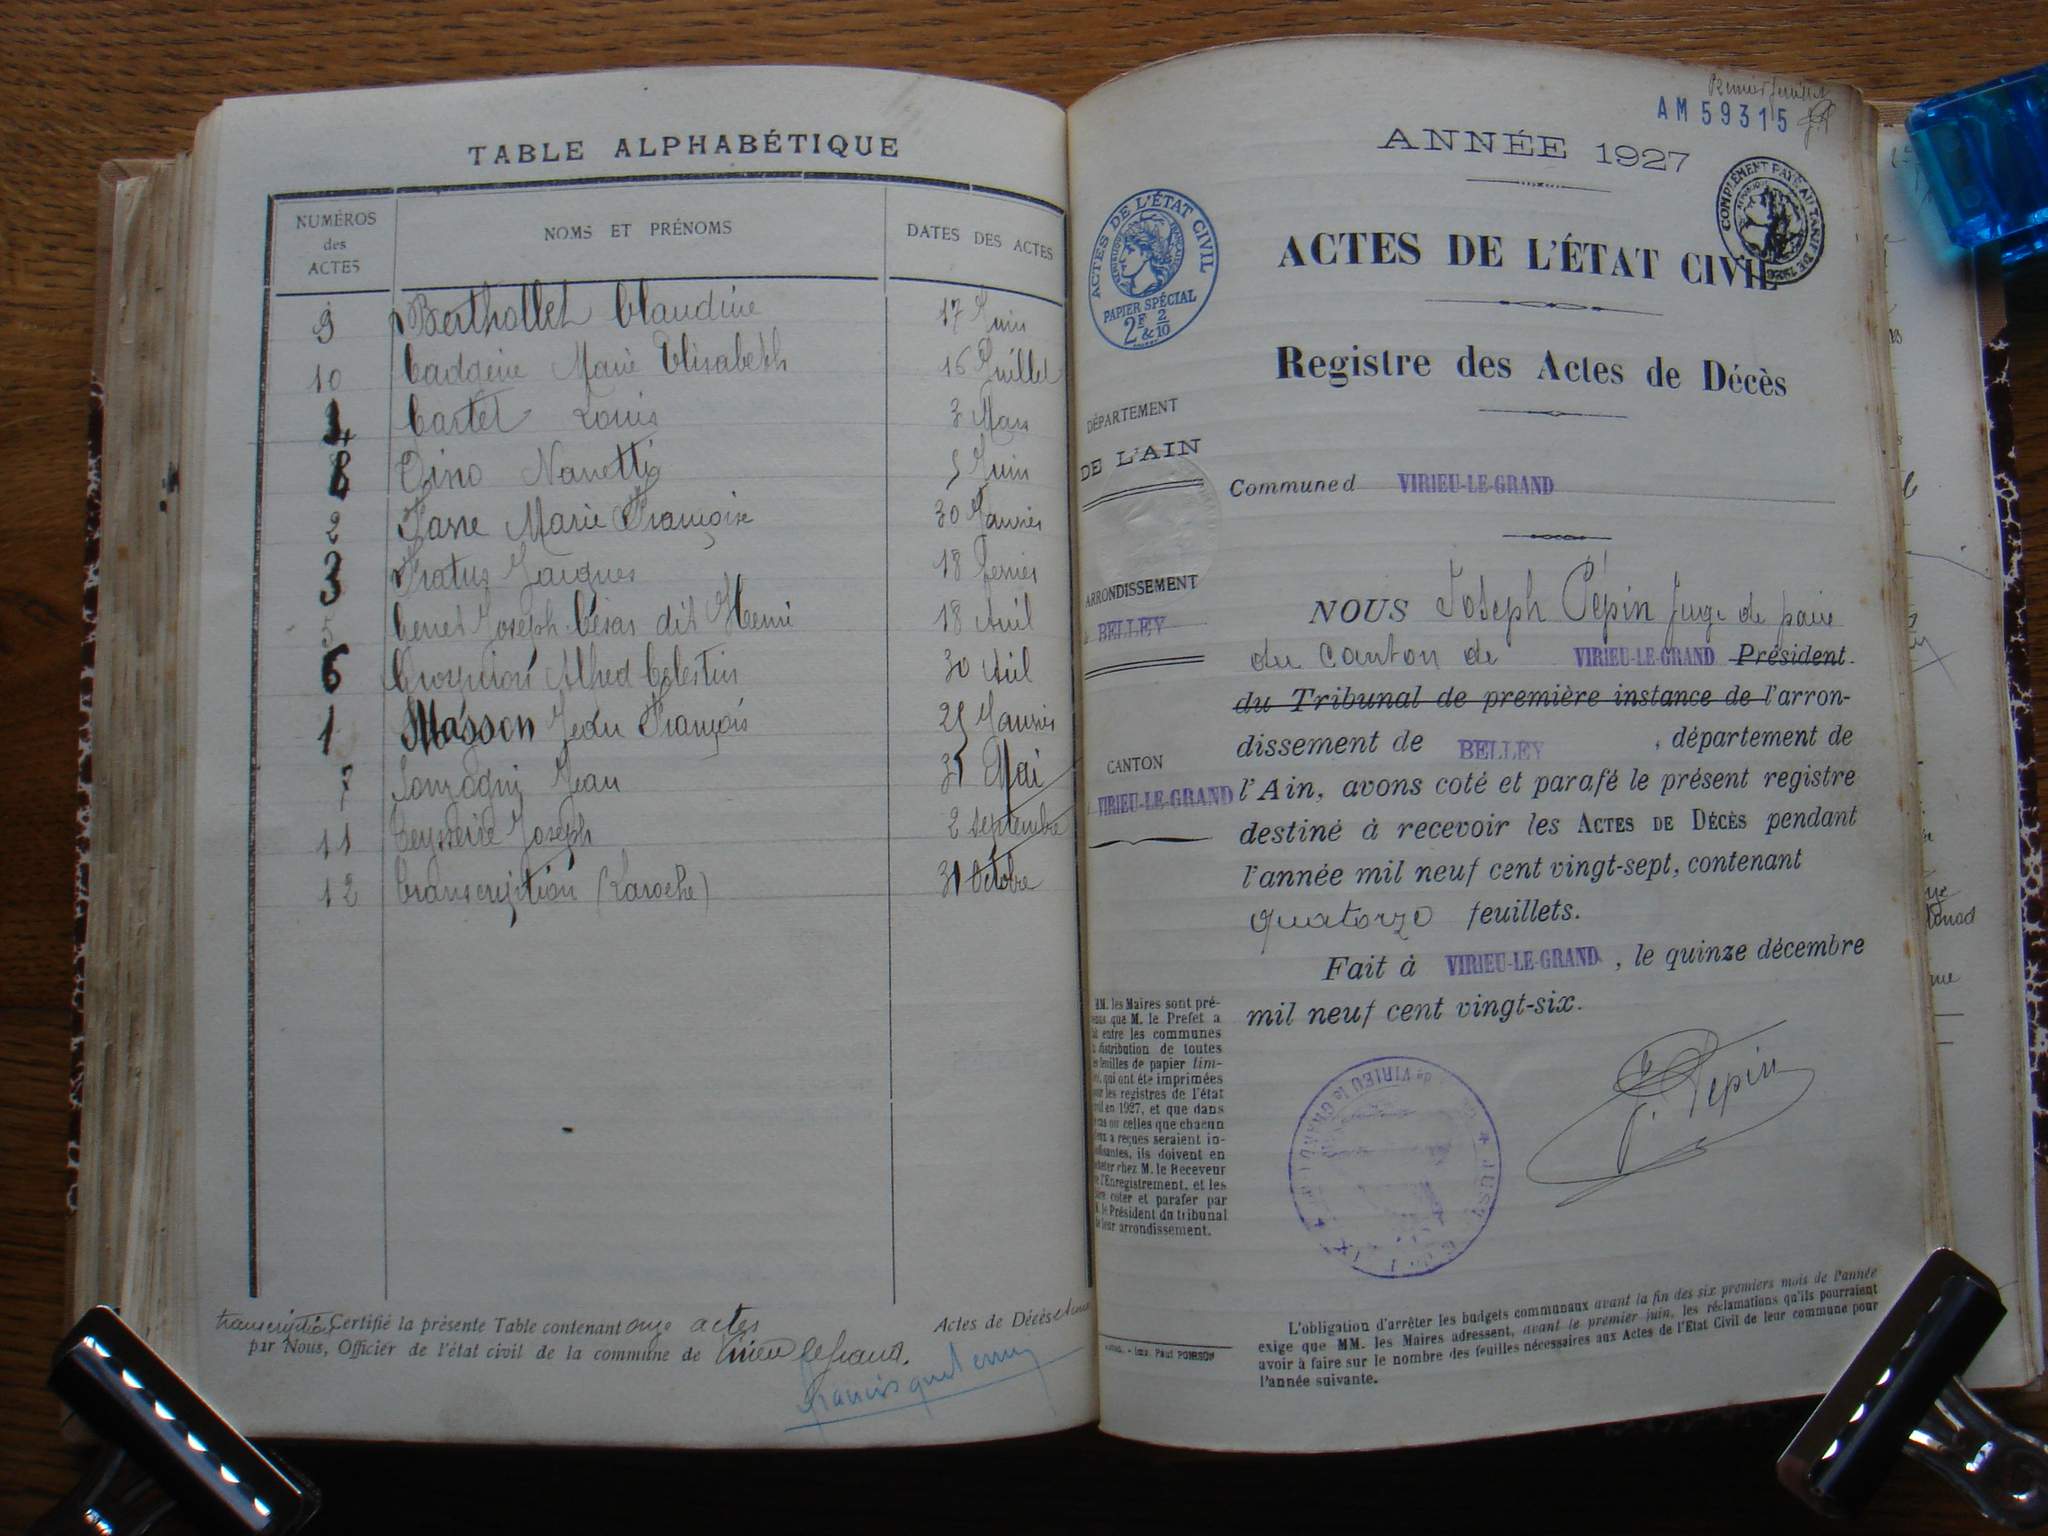 TABLE ALPHABÉTIQUE
NUMÉROS des ACTES
NOMS ET PRÉNOMS
DATES DES ACTES
9 Berthollet Claudine 17 Juin
10 Marie Elisabeth 16 Juillet
4 Cartet Louis 3 Mars
8 Dino Nanetti 5 Juin
2 Marie Françoise 30 Janvier
3 Jacques 18 Fevrier
5 Joseph César dit Henri 18 Avril
6 Alfred Celestin 30 Avril
1 Masson Jean François 25 Janvier
7 Jean 31 Mai
11 Joseph 2 Septembre
12 transcription (Laroche) 31 Octobre
transcription Certifié la présente Table contenant onze actes Actes de Décès
par Nous, Officier de l'état civil de la commune de Virieu le grand.
AM 59315
ANNÉE 1927
COMPLÉMENT PAYÉ AU TARIF DE
ACTES DE L'ÉTAT CIVIL
RÉPUBLIQUE FRANÇAISE
PAPIER SPÉCIAL
2F & 2/10
ACTES DE L'ÉTAT CIVIL
Registre des Actes de Décès
DÉPARTEMENT
DE L'AIN
Commune d VIRIEU-LE-GRAND
ARRONDISSEMENT
BELLEY
CANTON
VIRIEU-LE-GRAND
NOUS Joseph Pépin Juge de paix
du canton de VIRIEU-LE-GRAND Président
du Tribunal de première instance de l'arron-
dissement de BELLEY, département de
l'Ain, avons coté et parafé le présent registre
destiné à recevoir les ACTES DE DÉCÈS pendant
l'année mil neuf cent vingt-sept, contenant
quatorze feuillets.
Fait à VIRIEU-LE-GRAND, le quinze décembre
mil neuf cent vingt-six.
J. Pepin
MM. les Maires sont pré-
venus que M. le Prefet a
fait entre les communes
la distribution de toutes
les feuilles de papier tim-
bré, qui ont été imprimées
pour les registres de l'état
civil en 1927, et que dans
le cas ou celles que chacun
d'eux a reçues seraient in-
suffisantes, ils doivent en
acheter chez M. le Receveur
de l'Enregistrement, et les
faire coter et parafer par
M. le Président du tribunal
de leur arrondissement.
Imp. Paul
L'obligation d'arrêter les budgets communaux avant la fin des six premiers mois de l'année
exige que MM. les Maires adressent, avant le premier juin, les réclamations qu'ils pourraient
avoir à faire sur le nombre des feuilles nécessaires aux Actes de l'Etat Civil de leur commune pour
l'année suivante.